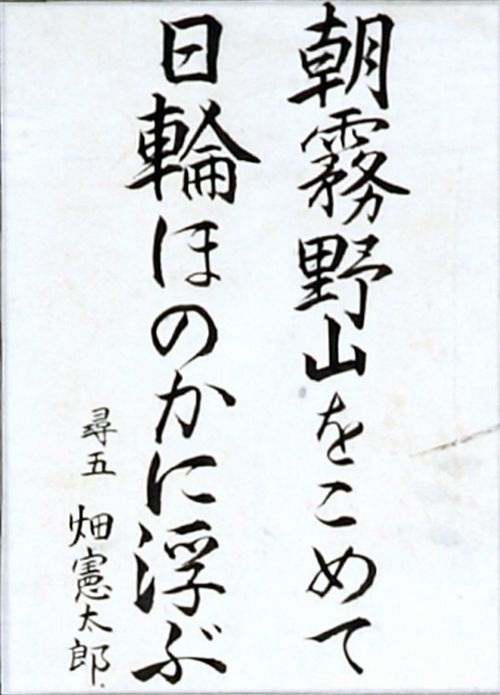 朝霧野山をこめて
日輪ほのかに浮ぶ
尋五 畑憲太郎